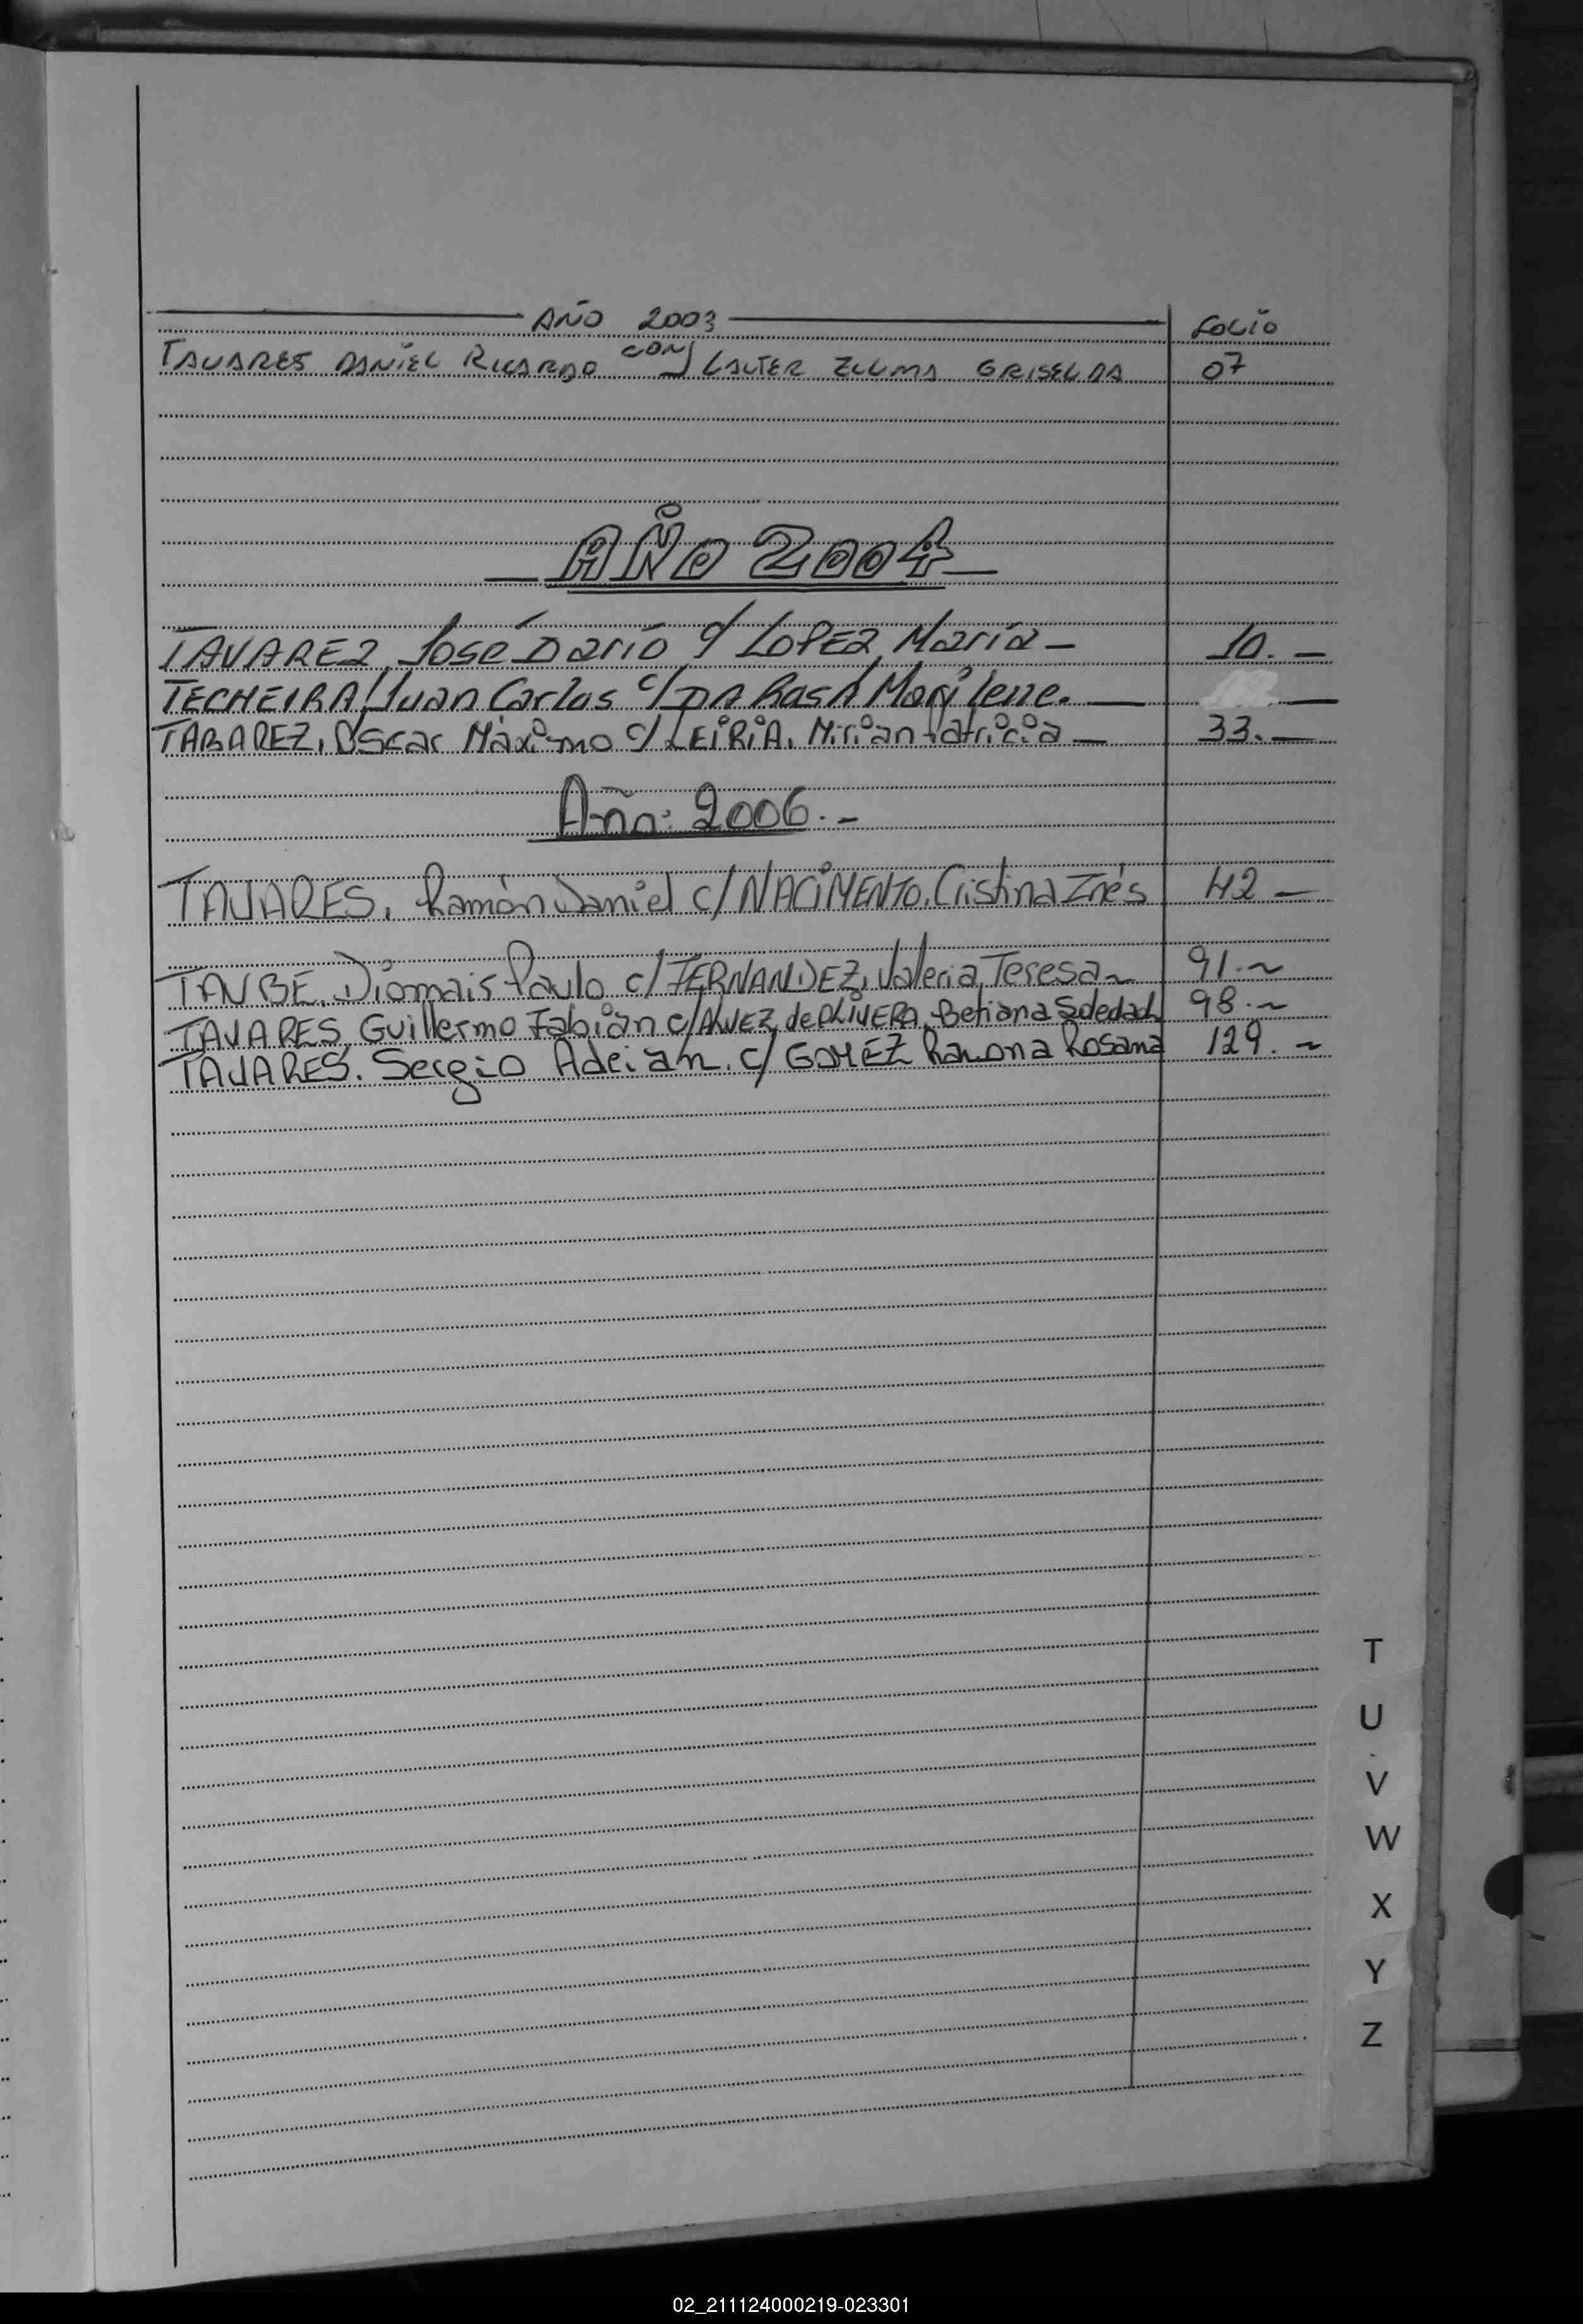 AÑO 2003 FOLIO
TAVARES DANIEL RICARDO CON/ LAUTER ZULMA GRISELDA 07
AÑO 2004
TAVAREZ, José Darío c/ LOPEZ, María - 10. -
TECHEIRA, Juan Carlos c/ DA ROSA Marilene. -
TABAREZ, Oscar Máximo c/ LEIRIA, Mirian Patricia - 33. -
Año: 2006. -
TAVARES, Ramón Daniel c/ NACIMENTO, Cristina Inés 42 -
TAUBE, Diomais Paulo c/ FERNANDEZ, Valeria Teresa ~ 91. ~
TAVARES, Guillermo Fabián c/ ALVEZ de OLIVERA, Betiana Soledad 98. ~
TAVARES, Sergio Adrian. c/ GOMEZ Ramona Rosana 129. ~
T
U
V
W
X
Y
Z
02_211124000219-023301